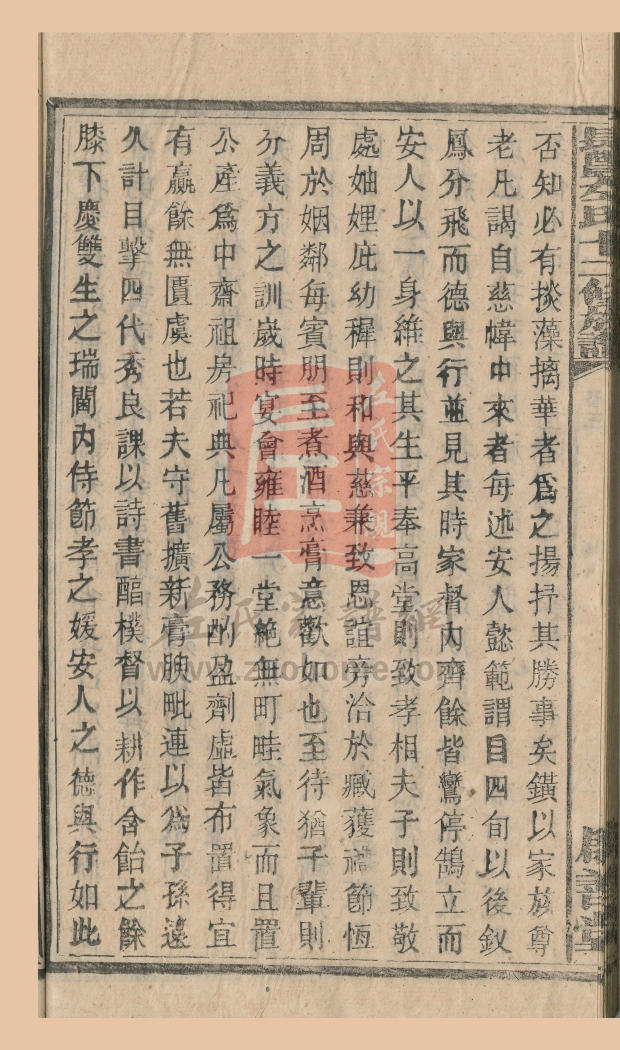 否知必有掞藻摛華者為之揚抒其勝事矣鐄以家族尊
老凡謁自慈幃中來者每述安人懿範謂自四旬以後釵
鳳分飛而德與行並見其時家督內齊餘皆鸞停鵠立而
安人以一身維之其生平奉高堂則致孝相夫子則致敬
處妯娌庇幼穉則和與慈兼致恩誼旁洽於臧獲禮節恆
周於姻鄰每賓朋至煮酒烹膏意歡如也至待猶子輩則
分義方之訓歲時宴會雍睦一堂絶無町畦氣象而且置
公產爲中齋祖房祀典凡屬公務酌盈劑虛皆布置得宜
有贏餘無匱虞也若夫守舊擴新膏腴毗連以為子孫遠
久計目擊四代秀良課以詩書醕樸督以耕作含飴之餘
膝下慶雙生之瑞閫內侍節孝之媛安人之德與行如此
左氏家譜網
www.zuohome.com